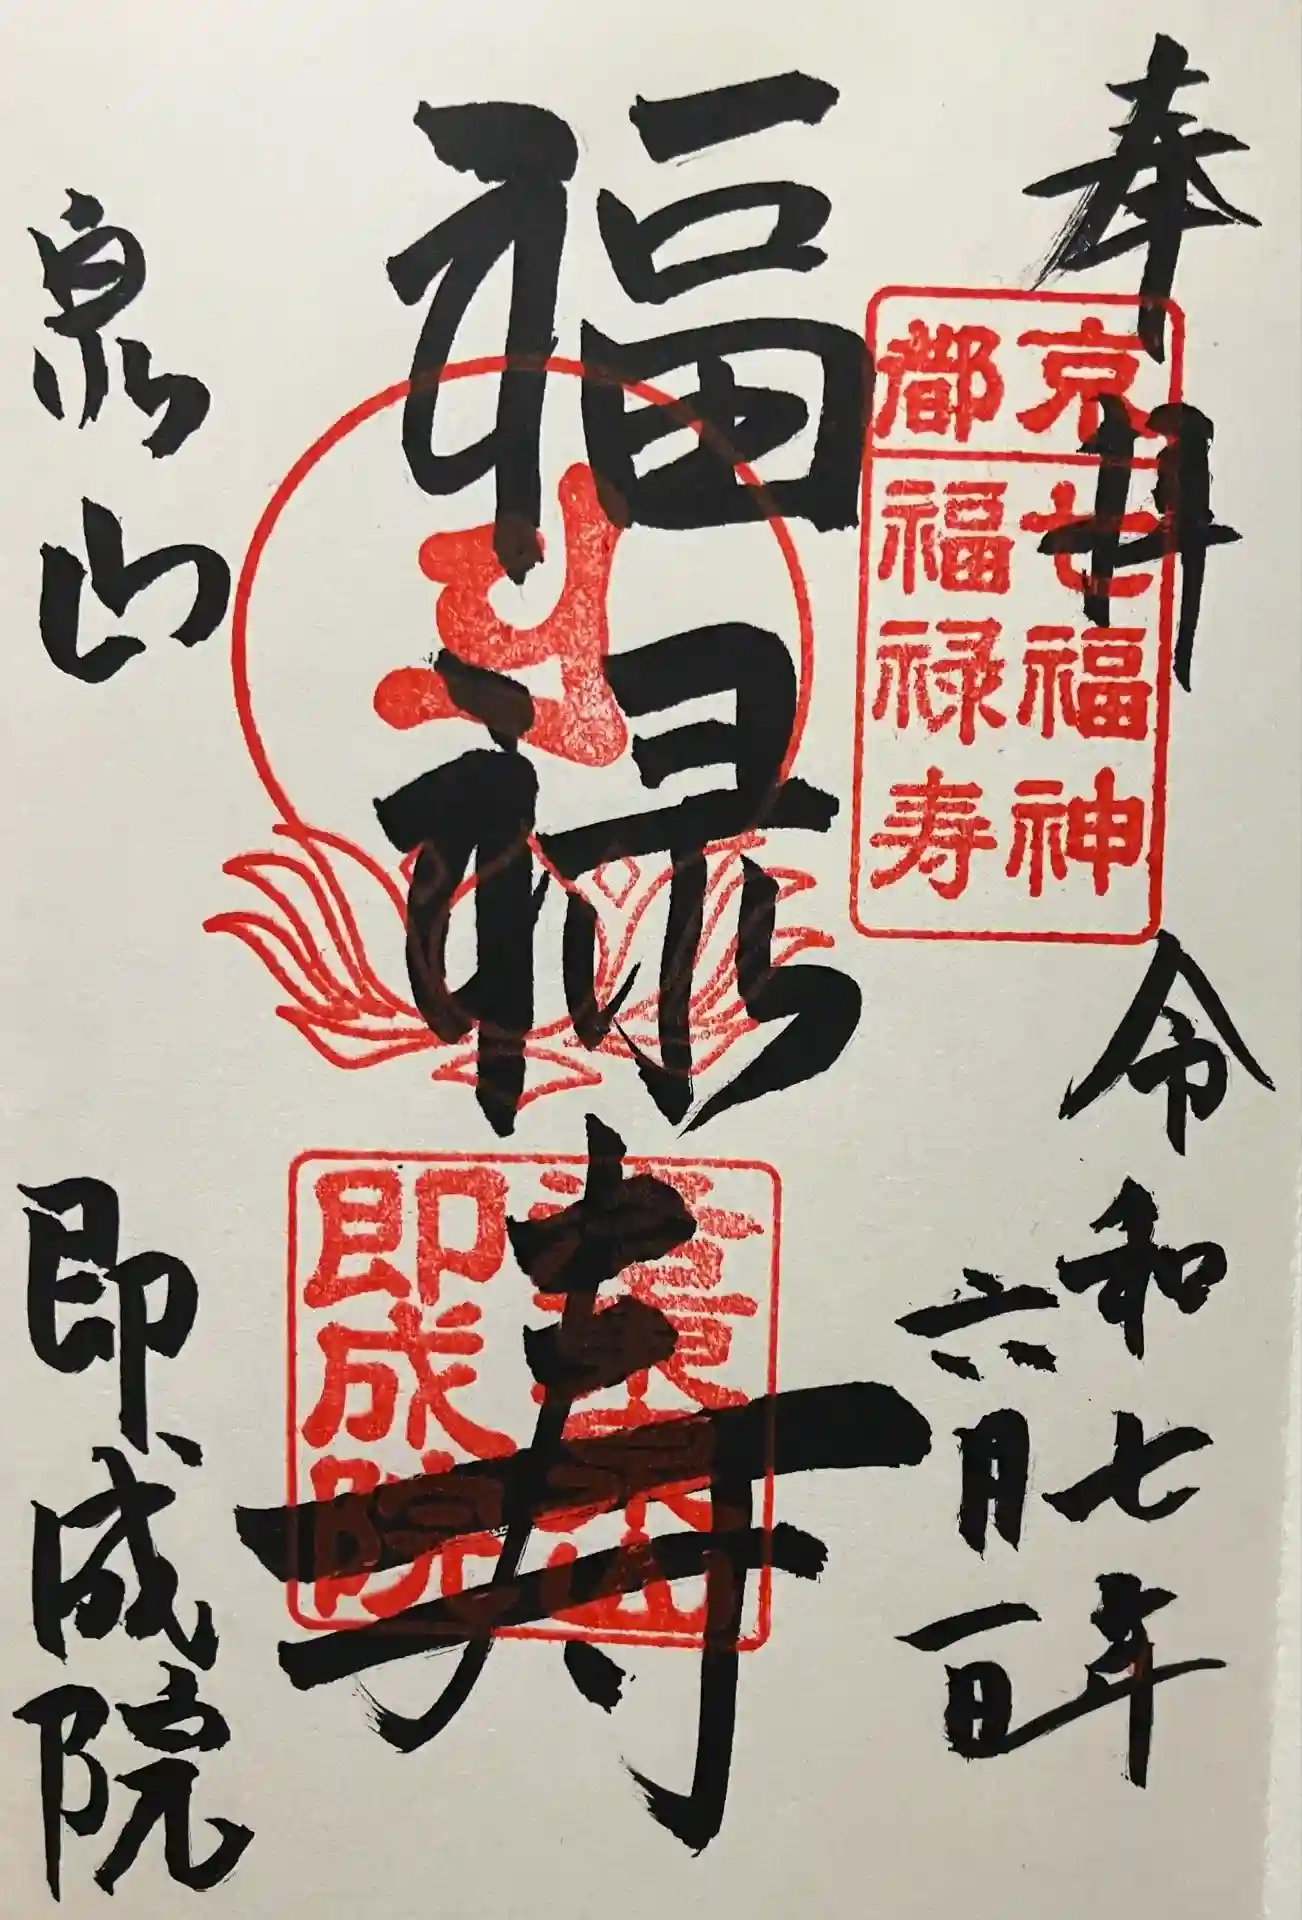 奉拝
京都
七福神
福禄寿
令和七年
六月一日
福禄寿
即成院
泉山
即成院